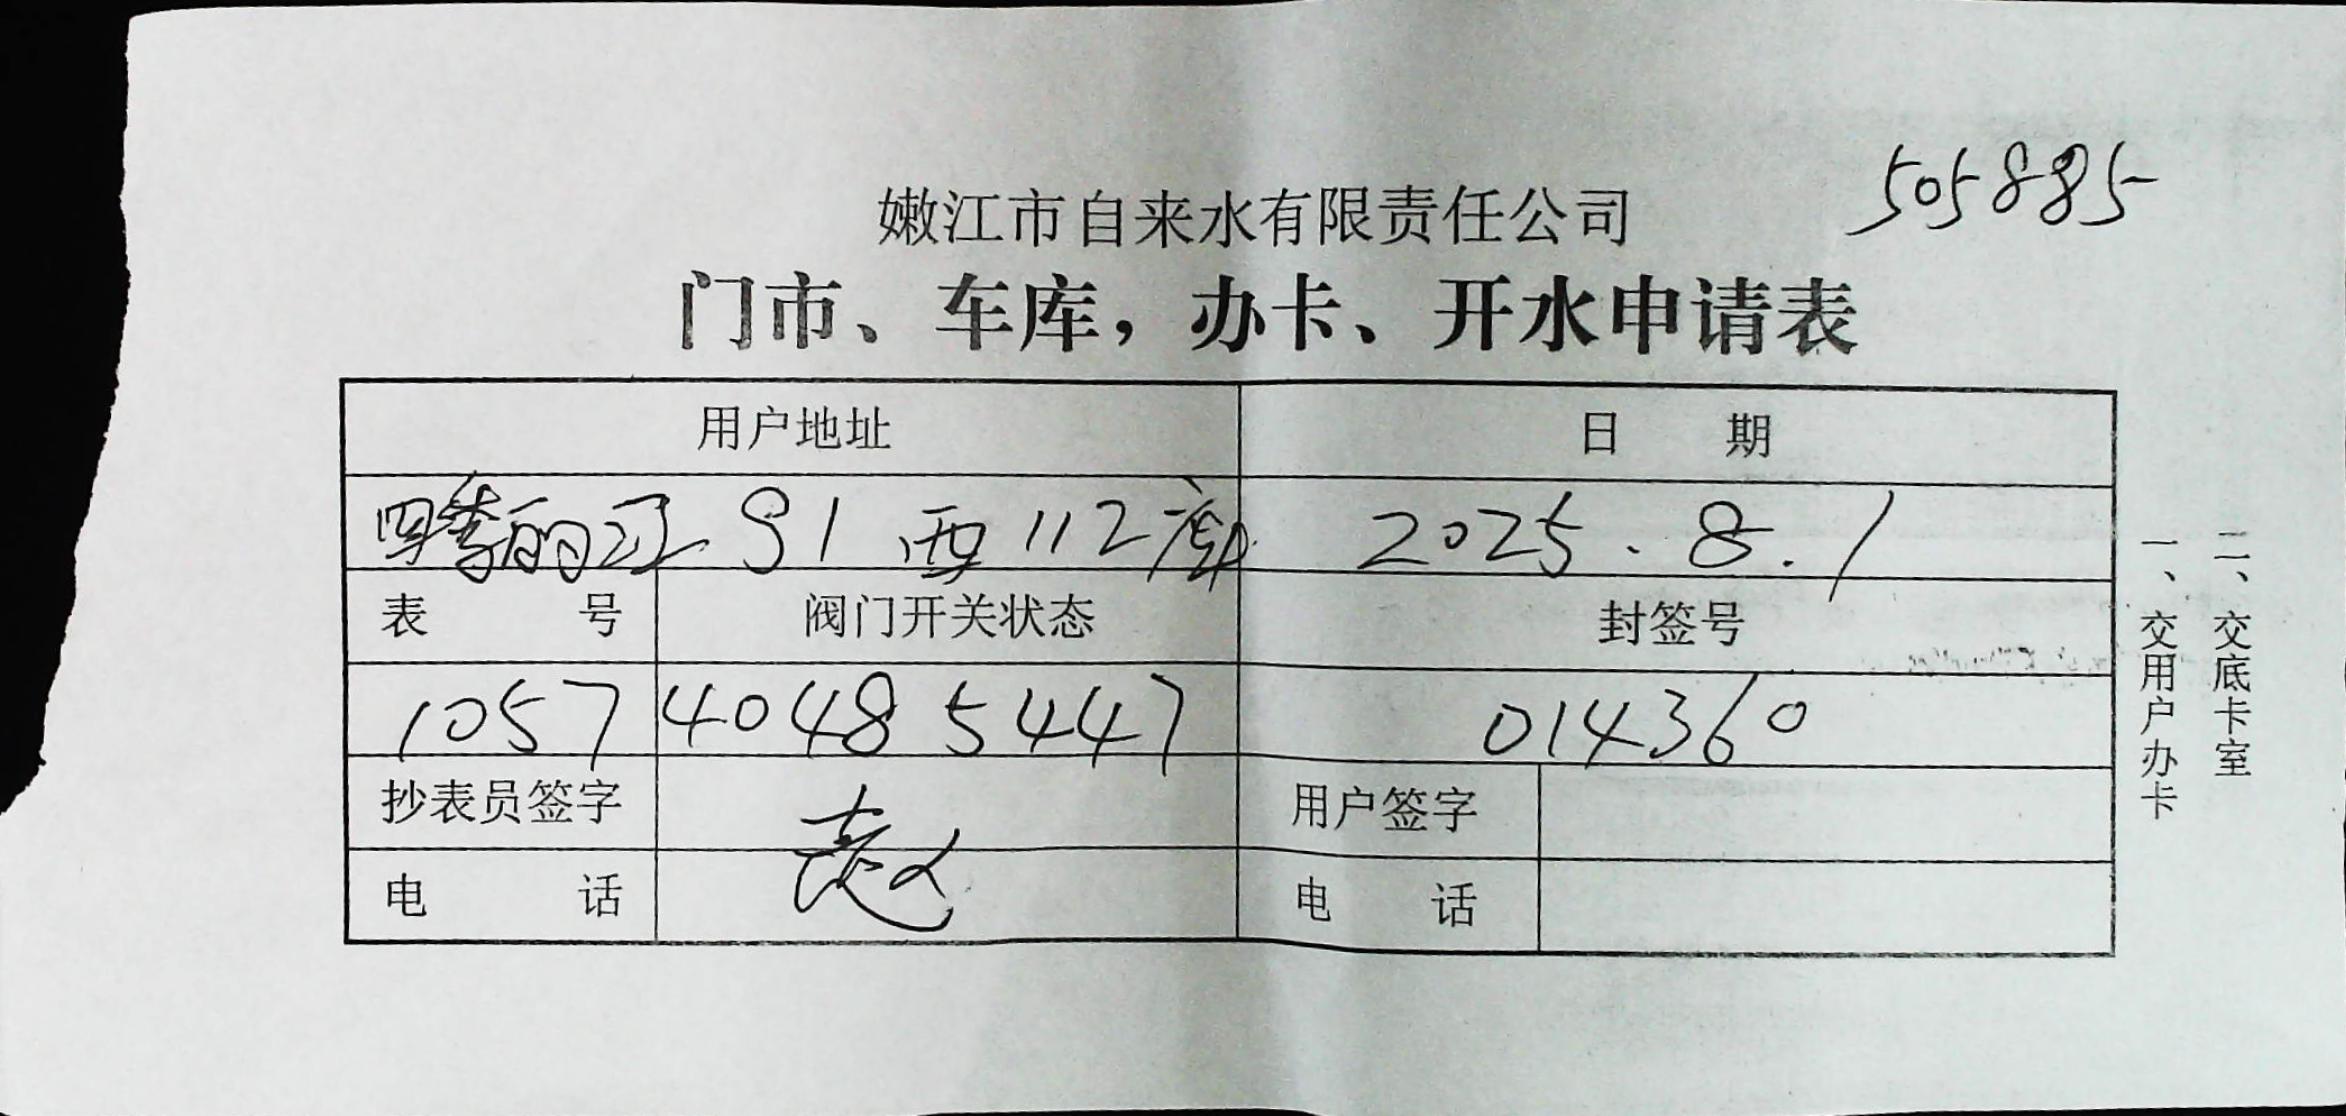 505885
嫩江市自来水有限责任公司
门市、车库，办卡、开水申请表
用户地址 日期
四季的江 S1 西112库 2025.8.1
表号 阀门开关状态 封签号
105740485447 014360
抄表员签字 用户签字
电话 电话
一、交用户办卡
二、交底卡室